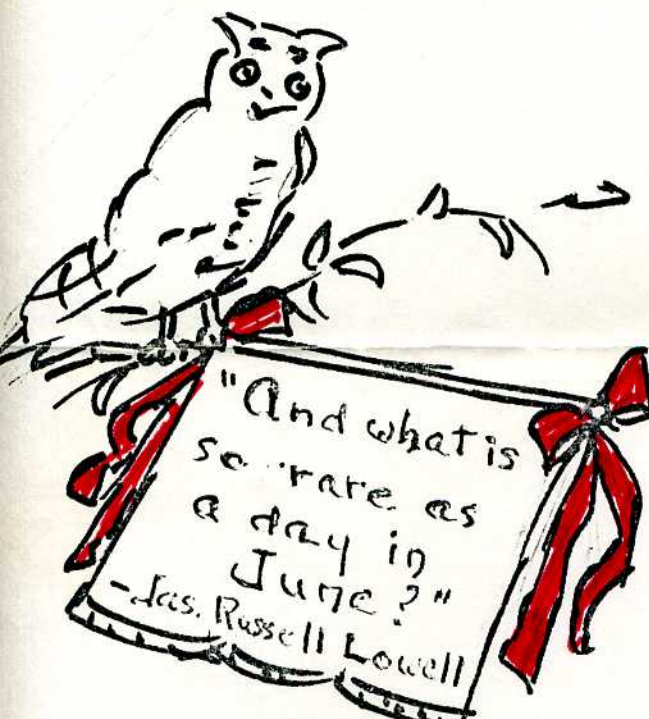 "And what is
so rare as
a day in
June?"
-Jas. Russell Lowell